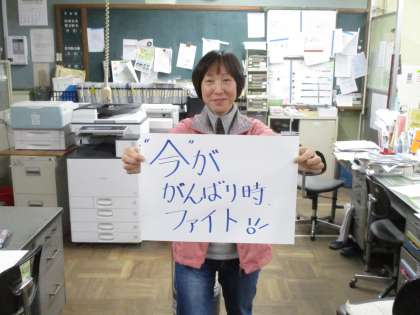 "今"が
がんばり時
ファイト!!